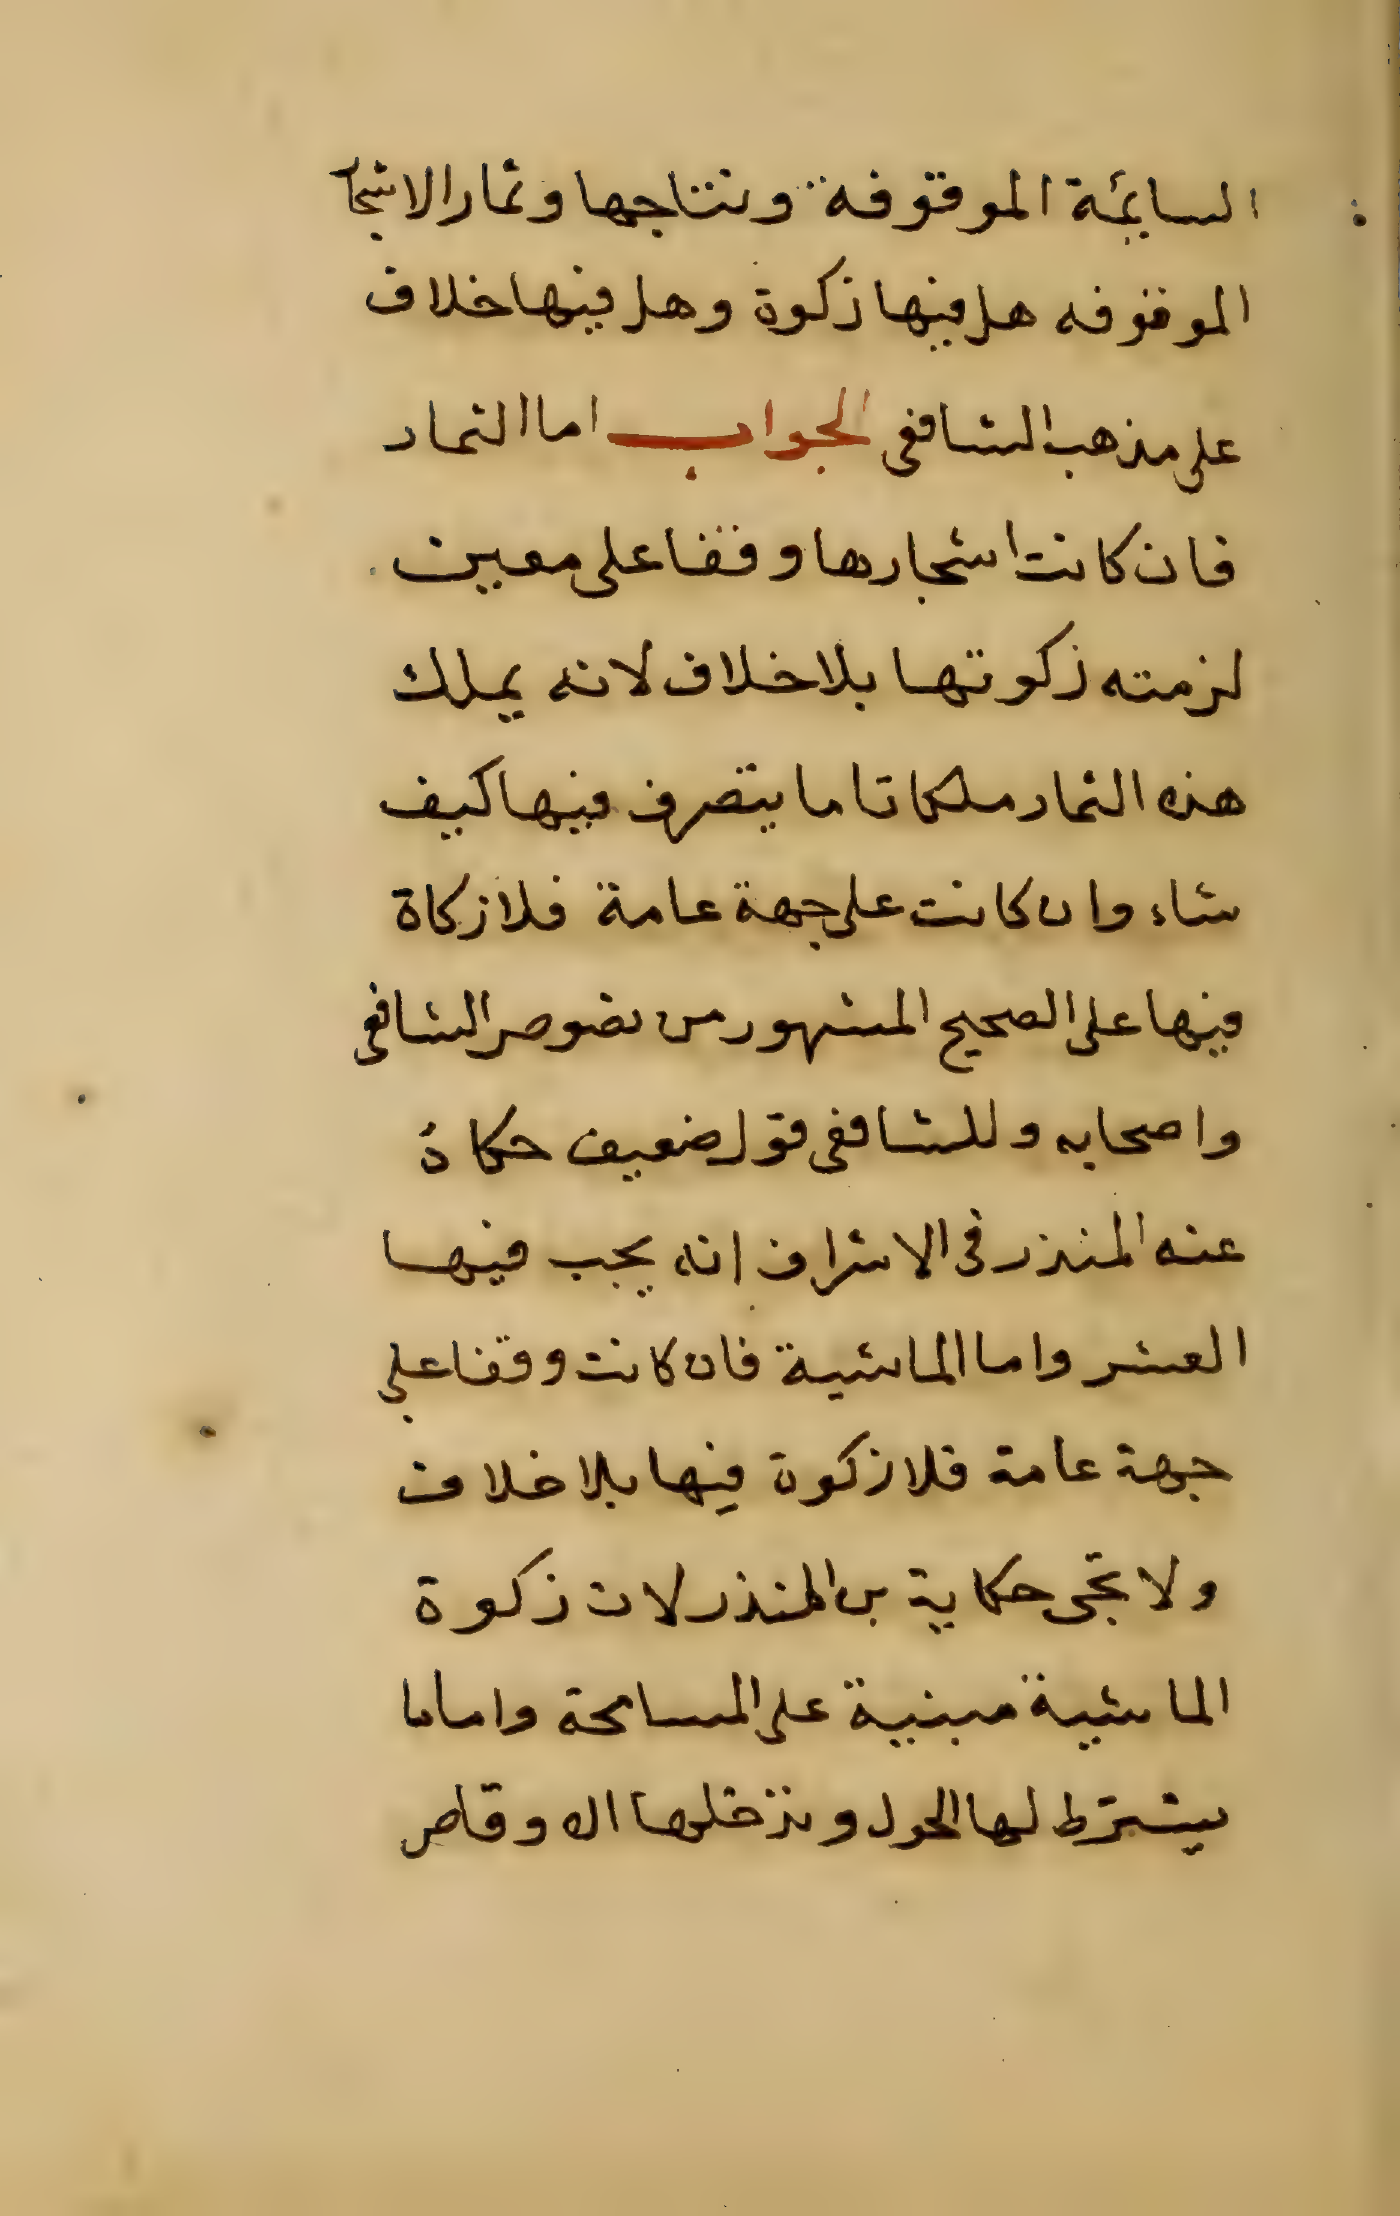 السايمة الموقوفة ونتاجها وثمار الاشجا
الموقوفه هل فيها زكوة وهل فيها خلاف
على مذهب الشافعى الجواب اما الثمار
فان كانت اشجارها وقفا على معين
لزمته زكوتها بلا خلاف لانه يملك
هذه الثمار ملكا تاما يتصرف فيها كيف
شاء وان كانت على جهة عامة فلا زكاة
فيها على الصحيح المشهور من نصوص الشافعى
واصحابه وللشافعى قول ضعيف حكاه
عنه المنذر فى الاشراف انه يجب فيها
العشر واما الماشية فان كانت وقفا على
جهة عامة فلا زكوة فيها بلا خلاف
ولا تجى حكاية بن المنذر لان زكوة
الماشية مبنية على المسامحة
يشترط لها الحول